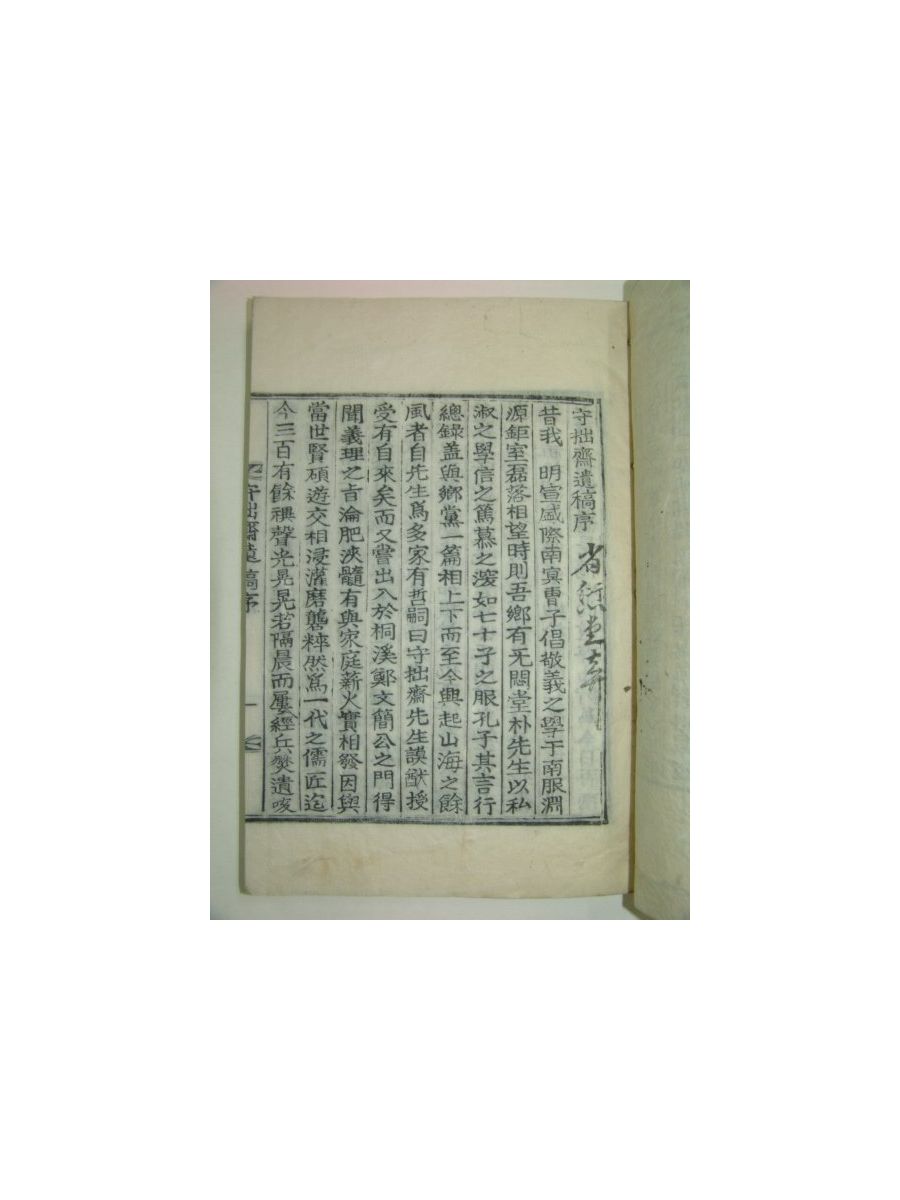 守拙齋遺稿序
昔我 明宣盛際南冥曺子倡敬義之學于南服淵
源鉅室磊落相望時則吾鄕有无悶堂朴先生以私
淑之學信之篤慕之深如七十子之服孔子其言行
總錄盖與鄕黨一篇相上下而至今興起山海之餘
風者自先生爲多家有哲嗣曰守拙齋先生謨猷授
受有自來矣而又嘗出入於桐溪鄭文簡公之門得
聞義理之旨淪肥浹髓有與家庭薪火實相發因與
當世賢碩遊交相浸灌磨礱粹然爲一代之儒匠迄
今三百有餘禩聲光晃晃若隔晨而屢經兵燹遺唆
守拙齋遺稿序
一